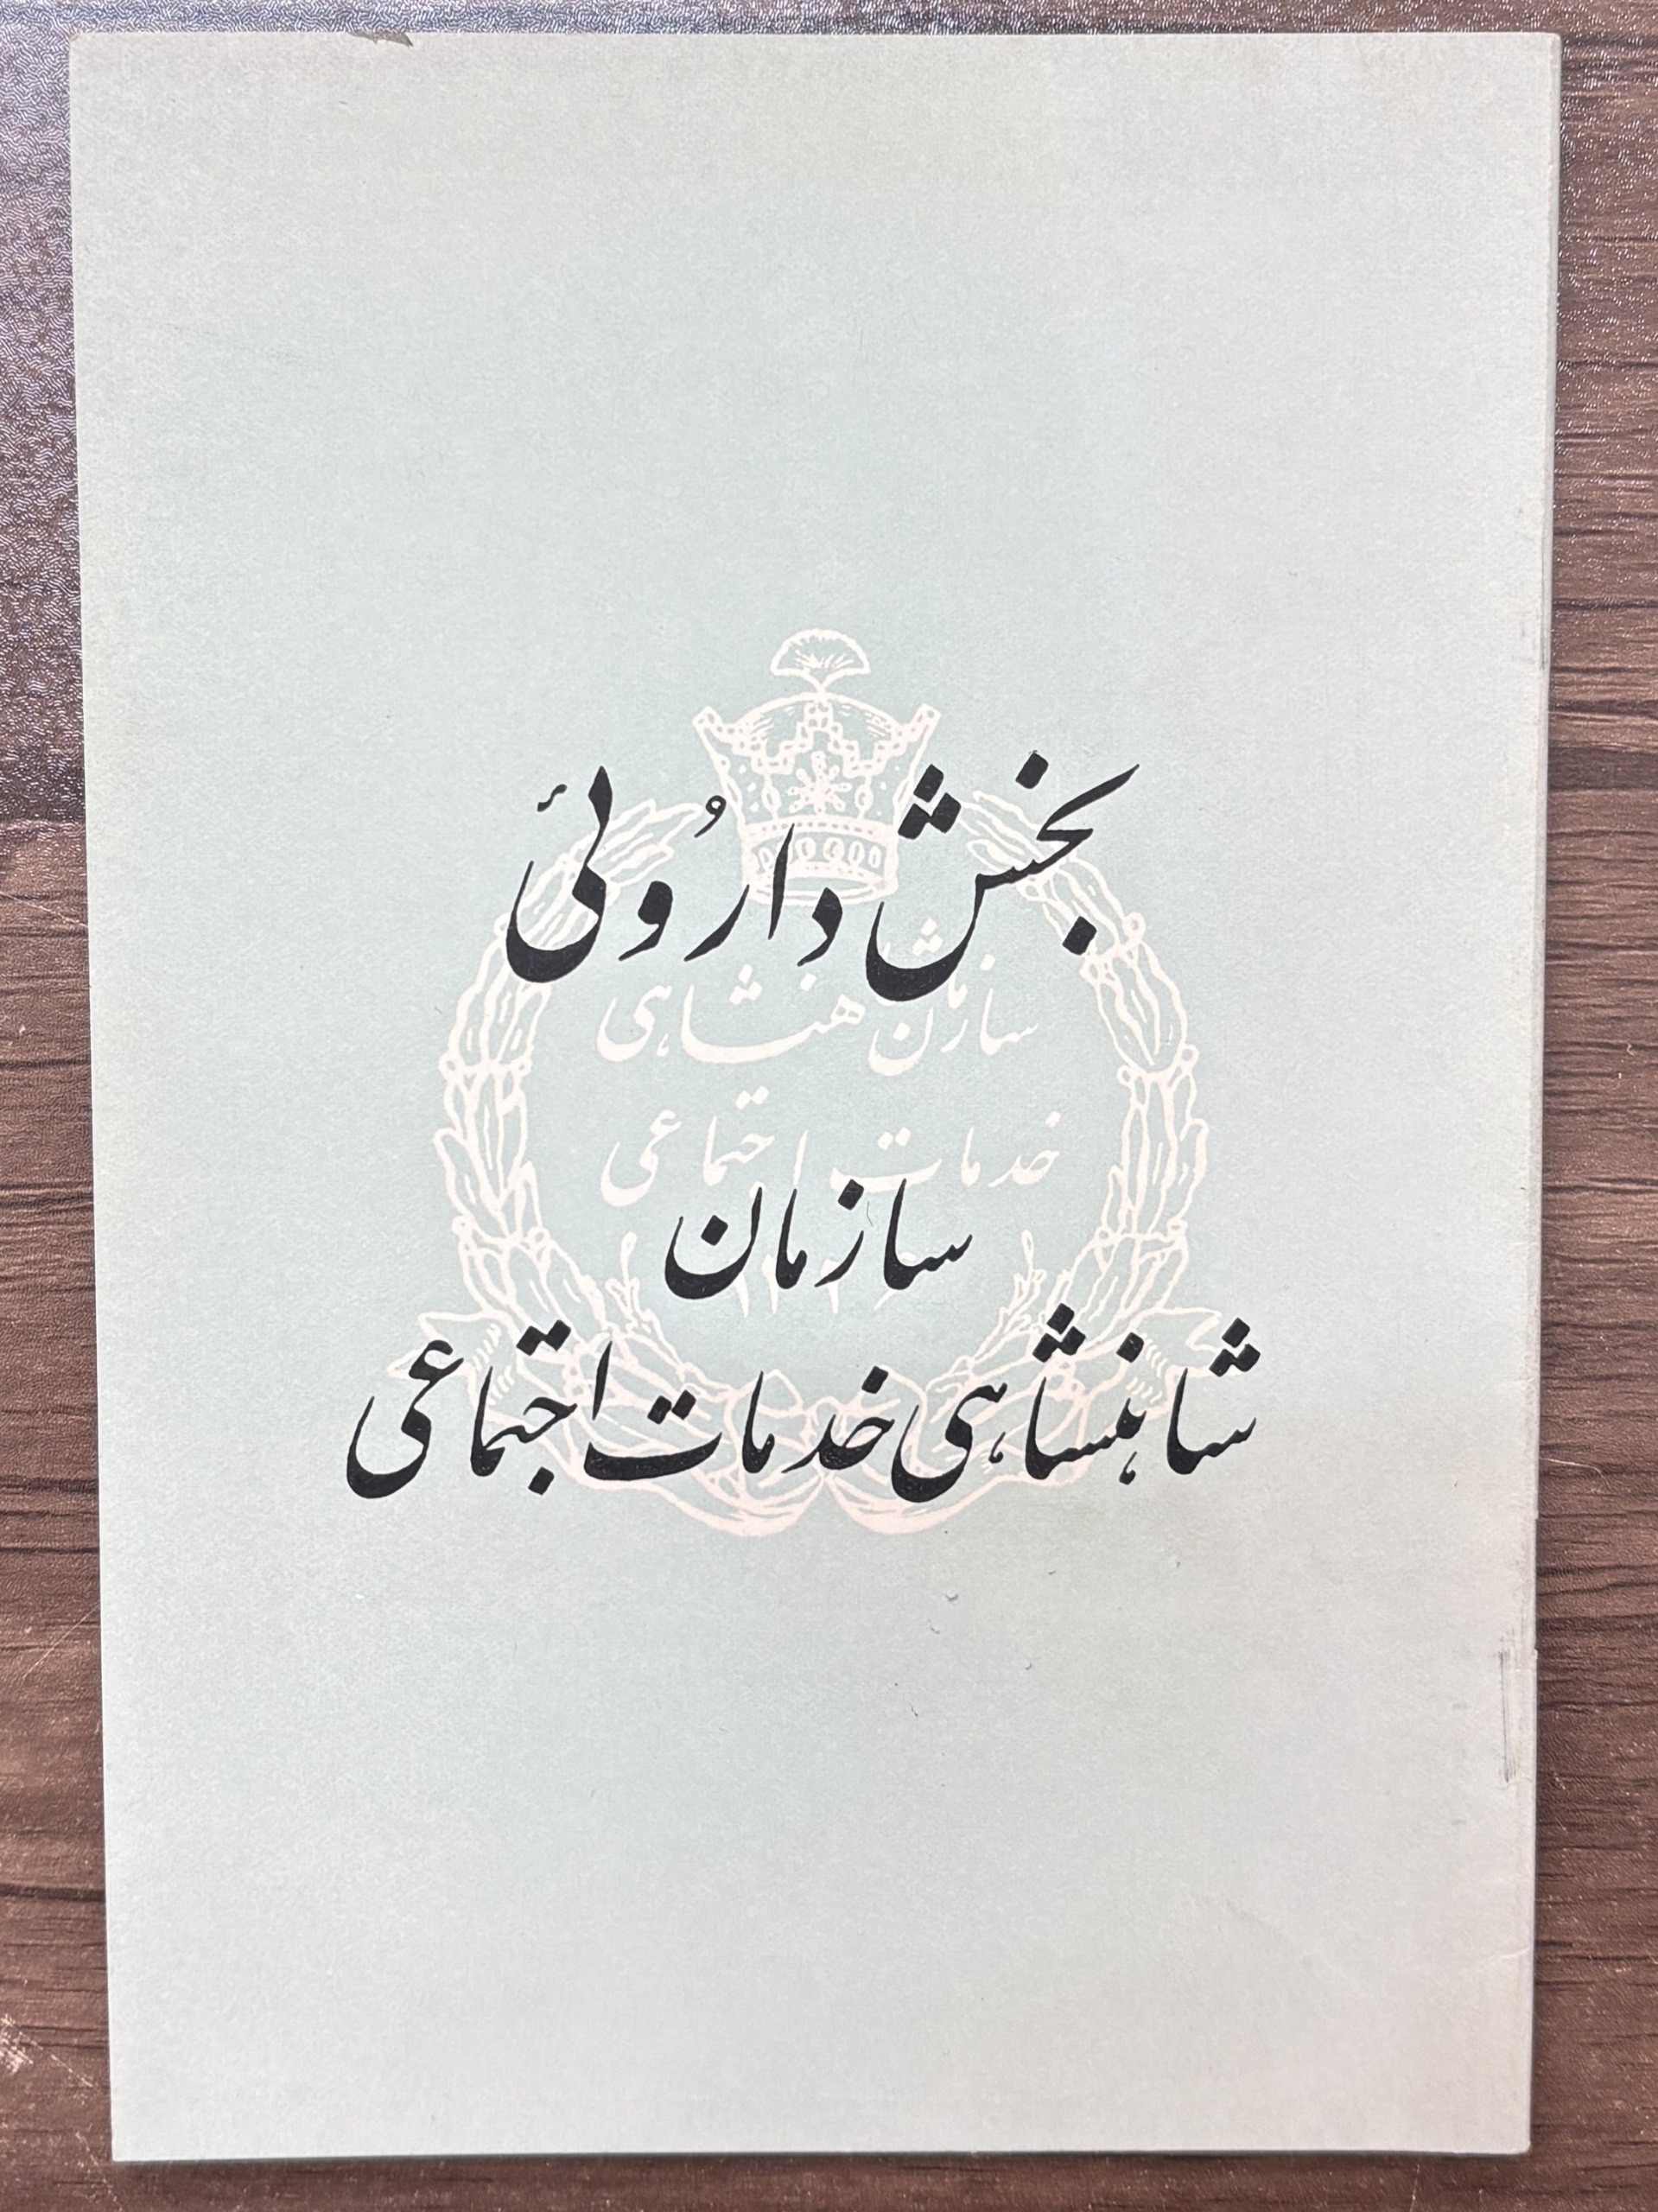 بخش داروئی
سازمان شاهنشاهی
خدمات اجتماعی
سازمان
شاهنشاهی خدمات اجتماعی